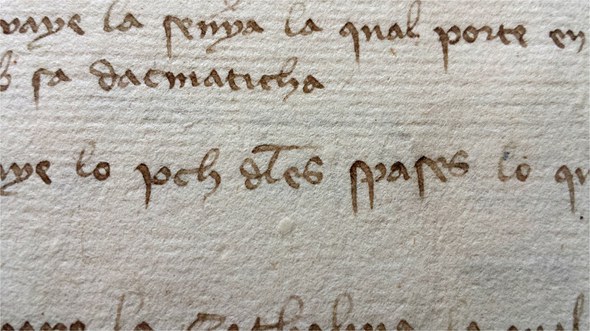 vaye la senya la qual porte en
sa dacmaticha
aye lo pch dles spases lo qu
la